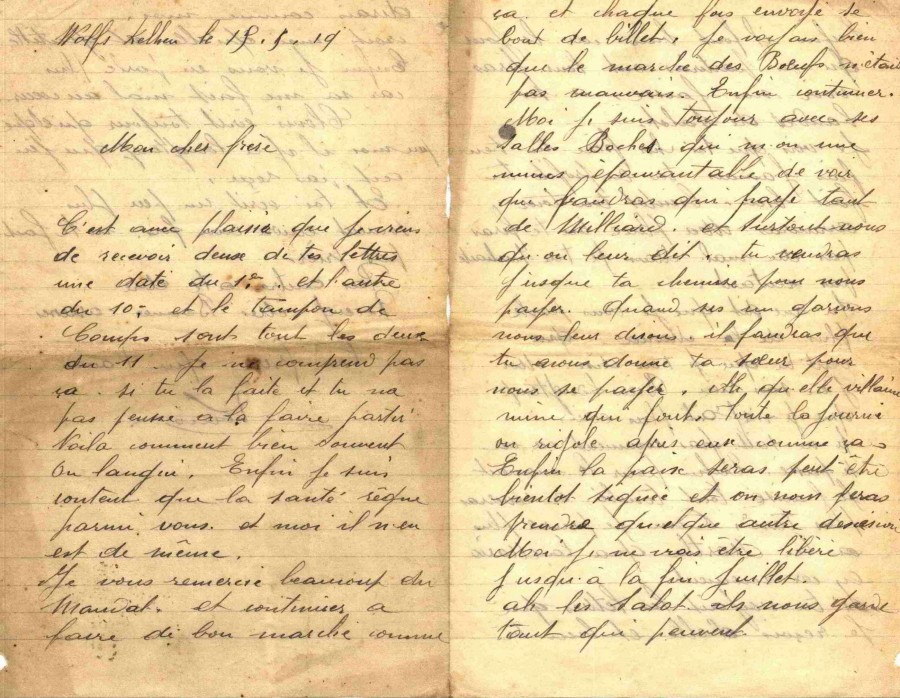 le 15.5.19
Mon cher frère
C'est avec plaisir que je viens
de recevoir deux de tes lettres
une daté du 1er. et l'autre
du 10- et le tampon de
Comps sont tout les deux
du 11 je ne comprend pas
ça. si tu la faite et tu na
pas pensse a la faire partir
Voila comment bien souvent
On langui. Enfin je suis
content que la santé règne
parmi vous. et moi il n'en
est de même.
Je vous remercie beaucoup du
Mandat. et continuer a
faire de bon marche comme
ça. et chaque fois envoyé le
bout de billet. je voyais bien
que le marche des Bœufs n'étai
pas mauvais. Enfin continuer.
Moi je suis toujour avec ses
salles Boches qui m on une
mines épouvantable de voir
qui faudras qui paye tant
de Milliard. et surtout nous
qu on leur dit. tu vendras
jusque ta chemise pour nous
payer. Quand ses un garcons
nous leur disons. il faudras que
tu nous donne ta sœur pour
nous se payer. Ah quelle villaine
mine qui font. Toute la journé
on rigole après eux comme ça
Enfin la paix seras peut être
bientot signée et on nous feras
prendre quelque autre
Moi je ne vais être libéré
jusqu'à la fin juillet
ah les salot ils nous garde
tant qui peuvent.